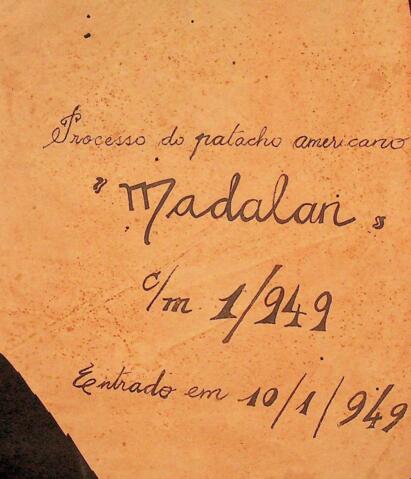 Processo do patacho americano
"Madalan"
c/m 1/949
Entrado em 10/1/949